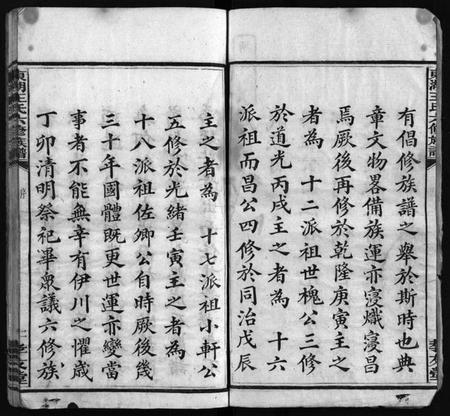 東湖王氏六修族譜
有倡修族譜之舉於斯時也典
章文物畧備族運亦寖熾寖昌
焉厥後再修於乾隆庚寅主之
者為 十二派祖世槐公三修
於道光丙戌主之者為 十六
派祖而昌公四修於同治戊辰
主之者為 十七派祖小軒公
五修於光緒壬寅主之者為
十八派祖佐卿公自時厥後幾
三十年國體既更世運亦變當
事者不能無幸有伊川之懼歲
丁卯清明祭祀畢衆議六修族
東湖王氏六修族譜
二 孝友堂